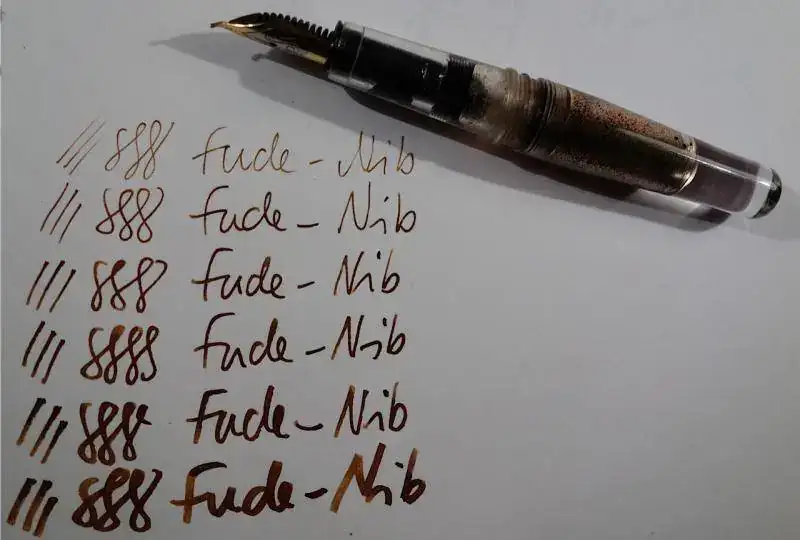 /// 888 Fude-Nib
/// 888 Fude-Nib
/// 888 Fude-Nib
/// 8888 Fude-Nib
/// 888 Fude-Nib
/// 888 Fude-Nib